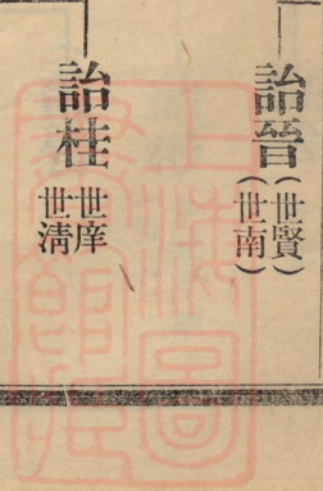 詒晉（世賢）（世南）
詒桂 世庠 世淸
上海圖書館藏